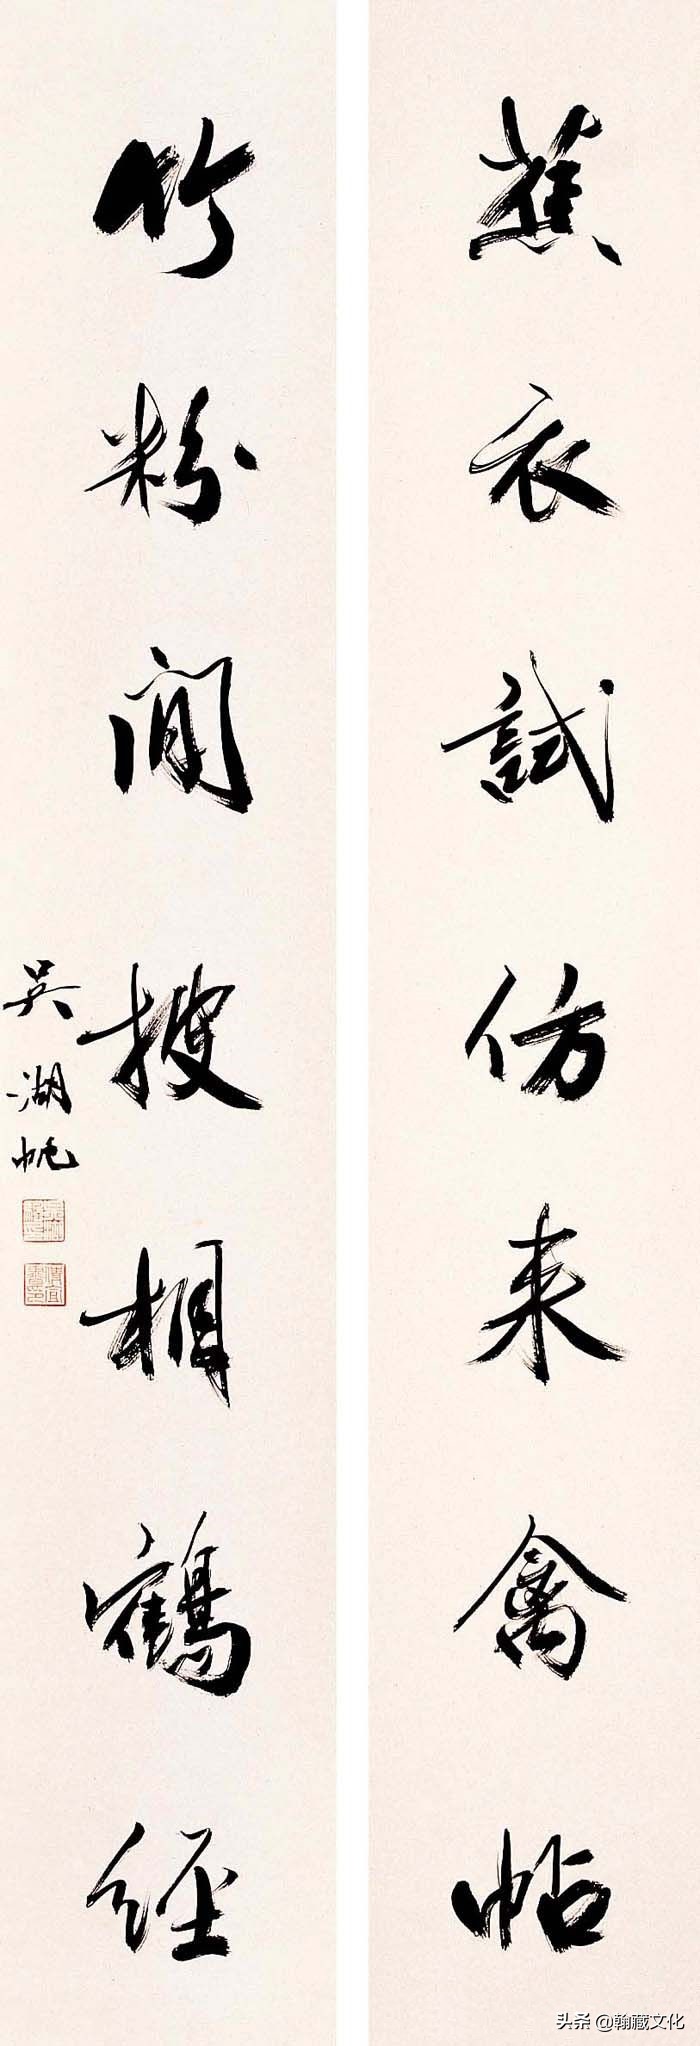 蕉衣試仿来禽帖
竹粉閒搜相鶴經
吳湖帆
头条 @翰藏文化